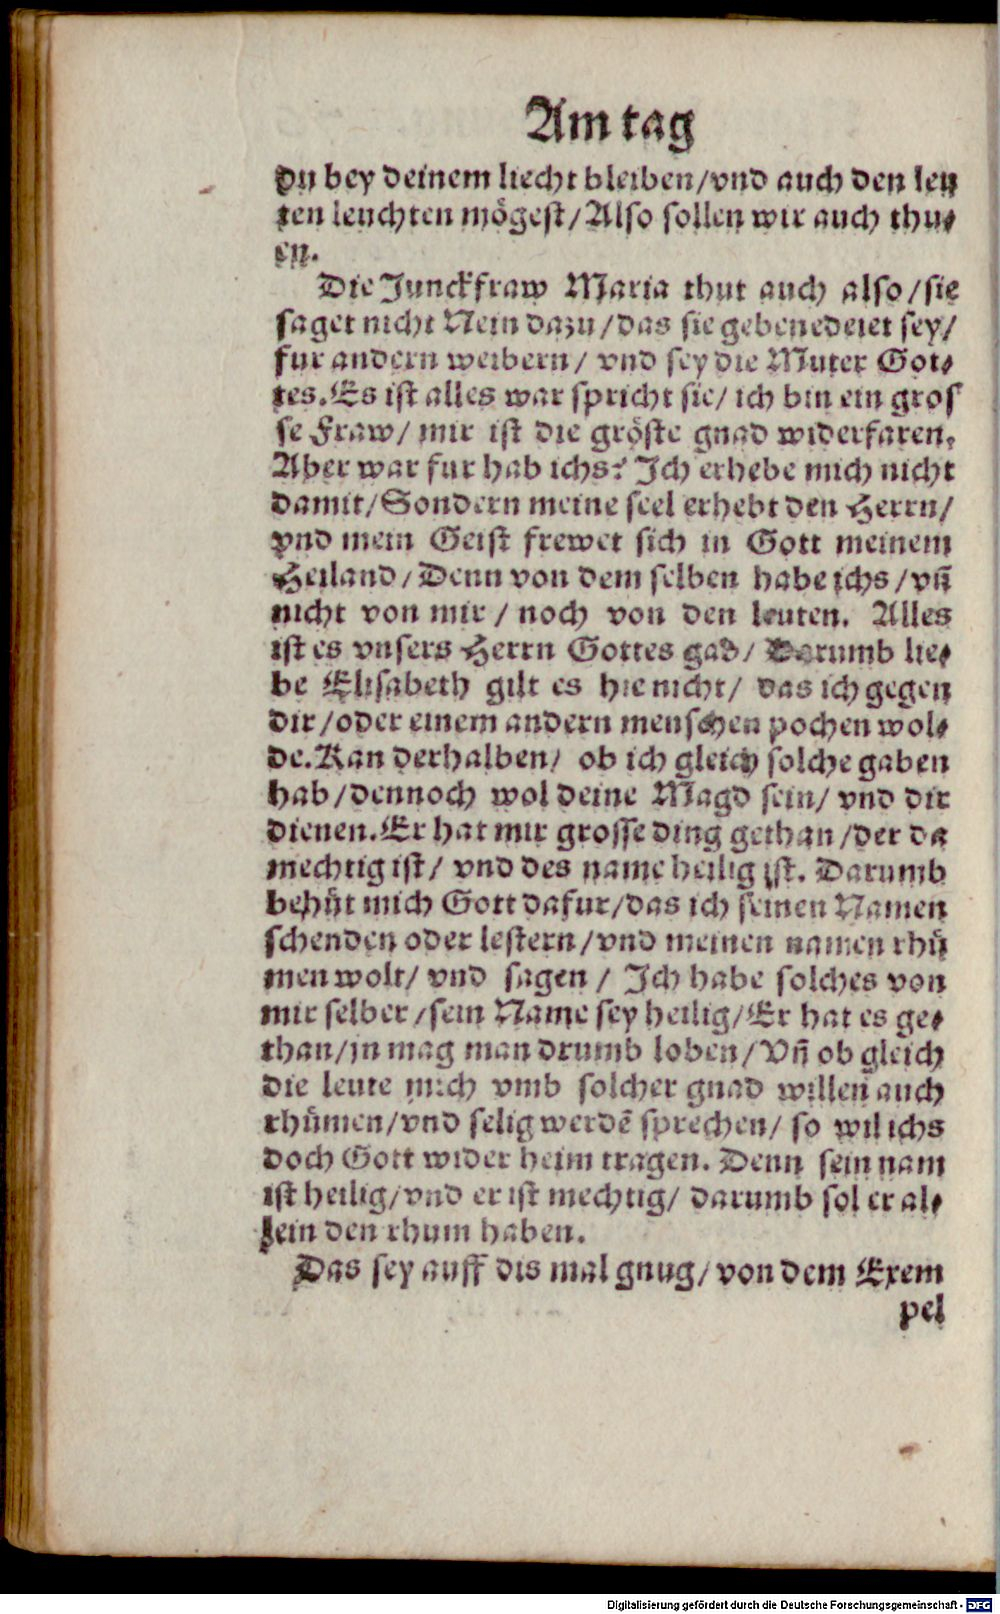 Am tag
du bey deinem liecht bleiben/vnd auch den leu
ten leuchten mögest/Also sollen wir auch thu⸗
en.
Die Junckfraw Maria thut auch also/sie
saget nicht Nein dazu/das sie gebenedeiet sey/
fur andern weibern/ vnd sey die Muter Got⸗
tes.Es ist alles war spricht sie/ ich bin ein gros
se Fraw/ mir ist die gröste gnad widerfaren,
Aber war fur hab ichs? Ich erhebe mich nicht
damit/Sondern meine seel erhebt den Herrn/
vnd mein Geist frewet sich in Gott meinem
Heiland/Denn von dem selben habe ichs/vñ
nicht von mir/ noch von den leuten. Alles
ist es vnsers Herrn Gottes gab/ Darumb lie⸗
be Elisabeth gilt es hie nicht/ das ich gegen
dir/oder einem andern menschen pochen wol⸗
de.Kan derhalben/ ob ich gleich solche gaben
hab/dennoch wol deine Magd sein/ vnd dir
dienen.Er hat mir grosse ding gethan/der da
mechtig ist/ vnd des name heilig ist. Darumb
behüt mich Gott dafur/das ich seinen Namen
schenden oder lestern/vnd meinen namen rhü
men wolt/ vnd sagen/ Ich habe solches von
mir selber/sein Name sey heilig/Er hat es ge⸗
than/jn mag man drumb loben/Vñ ob gleich
die leute mich vmb solcher gnad willen auch
rhümen/vnd selig werdē sprechen/ so wil ichs
doch Gott wider heim tragen. Denn sein nam
ist heilig/vnd er ist mechtig/ darumb sol er al⸗
lein den rhum haben.
Das sey auff dis mal gnug/von dem Exem
pel
Digitalisierung gefördert durch die Deutsche Forschungsgemeinschaft - DFG